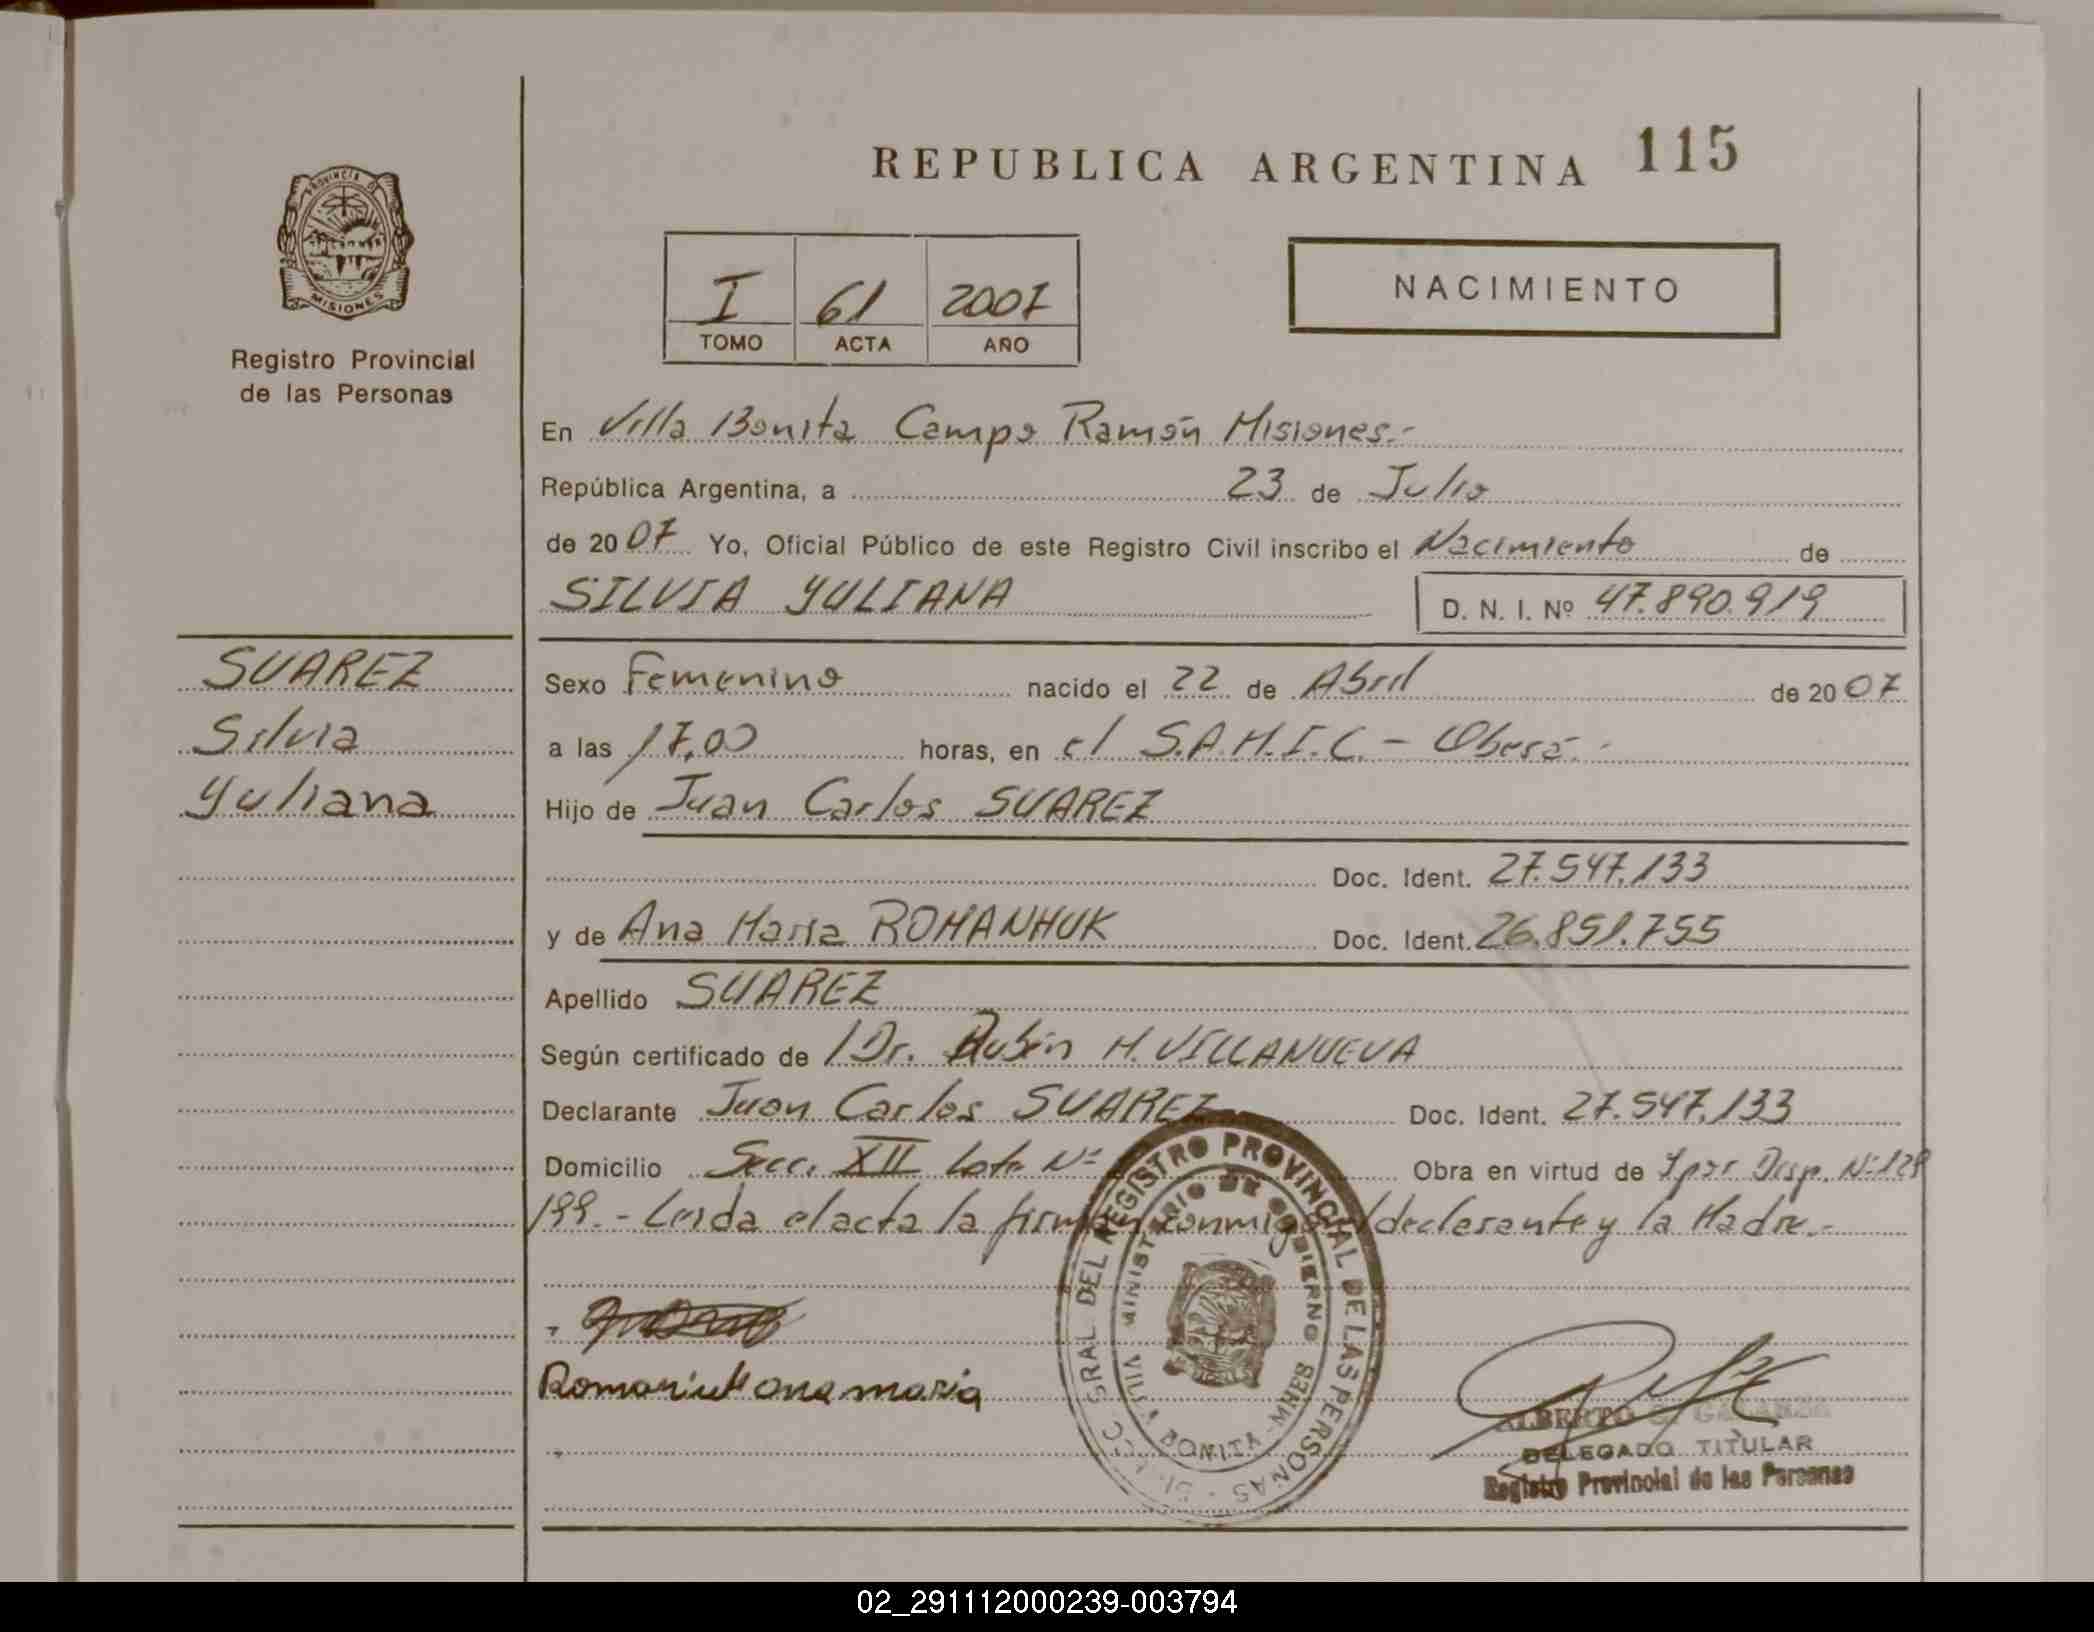 REPUBLICA ARGENTINA 115
PROVINCIA D
MISIONES
Registro Provincial
de las Personas
I 61 2007
TOMO ACTA AÑO
NACIMIENTO
En Villa Bonita Campo Ramón Misiones.-
República Argentina, a 23 de Julio
de 2007 Yo, Oficial Público de este Registro Civil inscribo el Nacimiento de
SILVIA YULIANA D. N. I. Nº 47.890.919
SUAREZ
Silvia
Yuliana
Sexo Femenino nacido el 22 de Abril de 2007
a las 17,00 horas, en el S.A.M.I.C. - Oberá.-
Hijo de Juan Carlos SUAREZ
Doc. Ident. 27.547.133
y de Ana Maria ROMANHUK Doc. Ident. 26.851.755
Apellido SUAREZ
Según certificado de /Dr. Rubén H. VILLANUEVA
Declarante Juan Carlos SUAREZ Doc. Ident. 27.547.133
Domicilio Secc. XII Lote Nº Obra en virtud de Ipar Disp. Nº 128
199.- Leida el acta la firman conmigo declarante y la Madre.-
Romaniuk ana maria
GRAL. DEL REGISTRO PROVINCIAL DE LAS PERSONAS
MINISTERIO DE GOBIERNO
VILLA BONITA - MNES
ALBERTO
DELEGADO TITULAR
Registro Provincial de las Personas
02_291112000239-003794